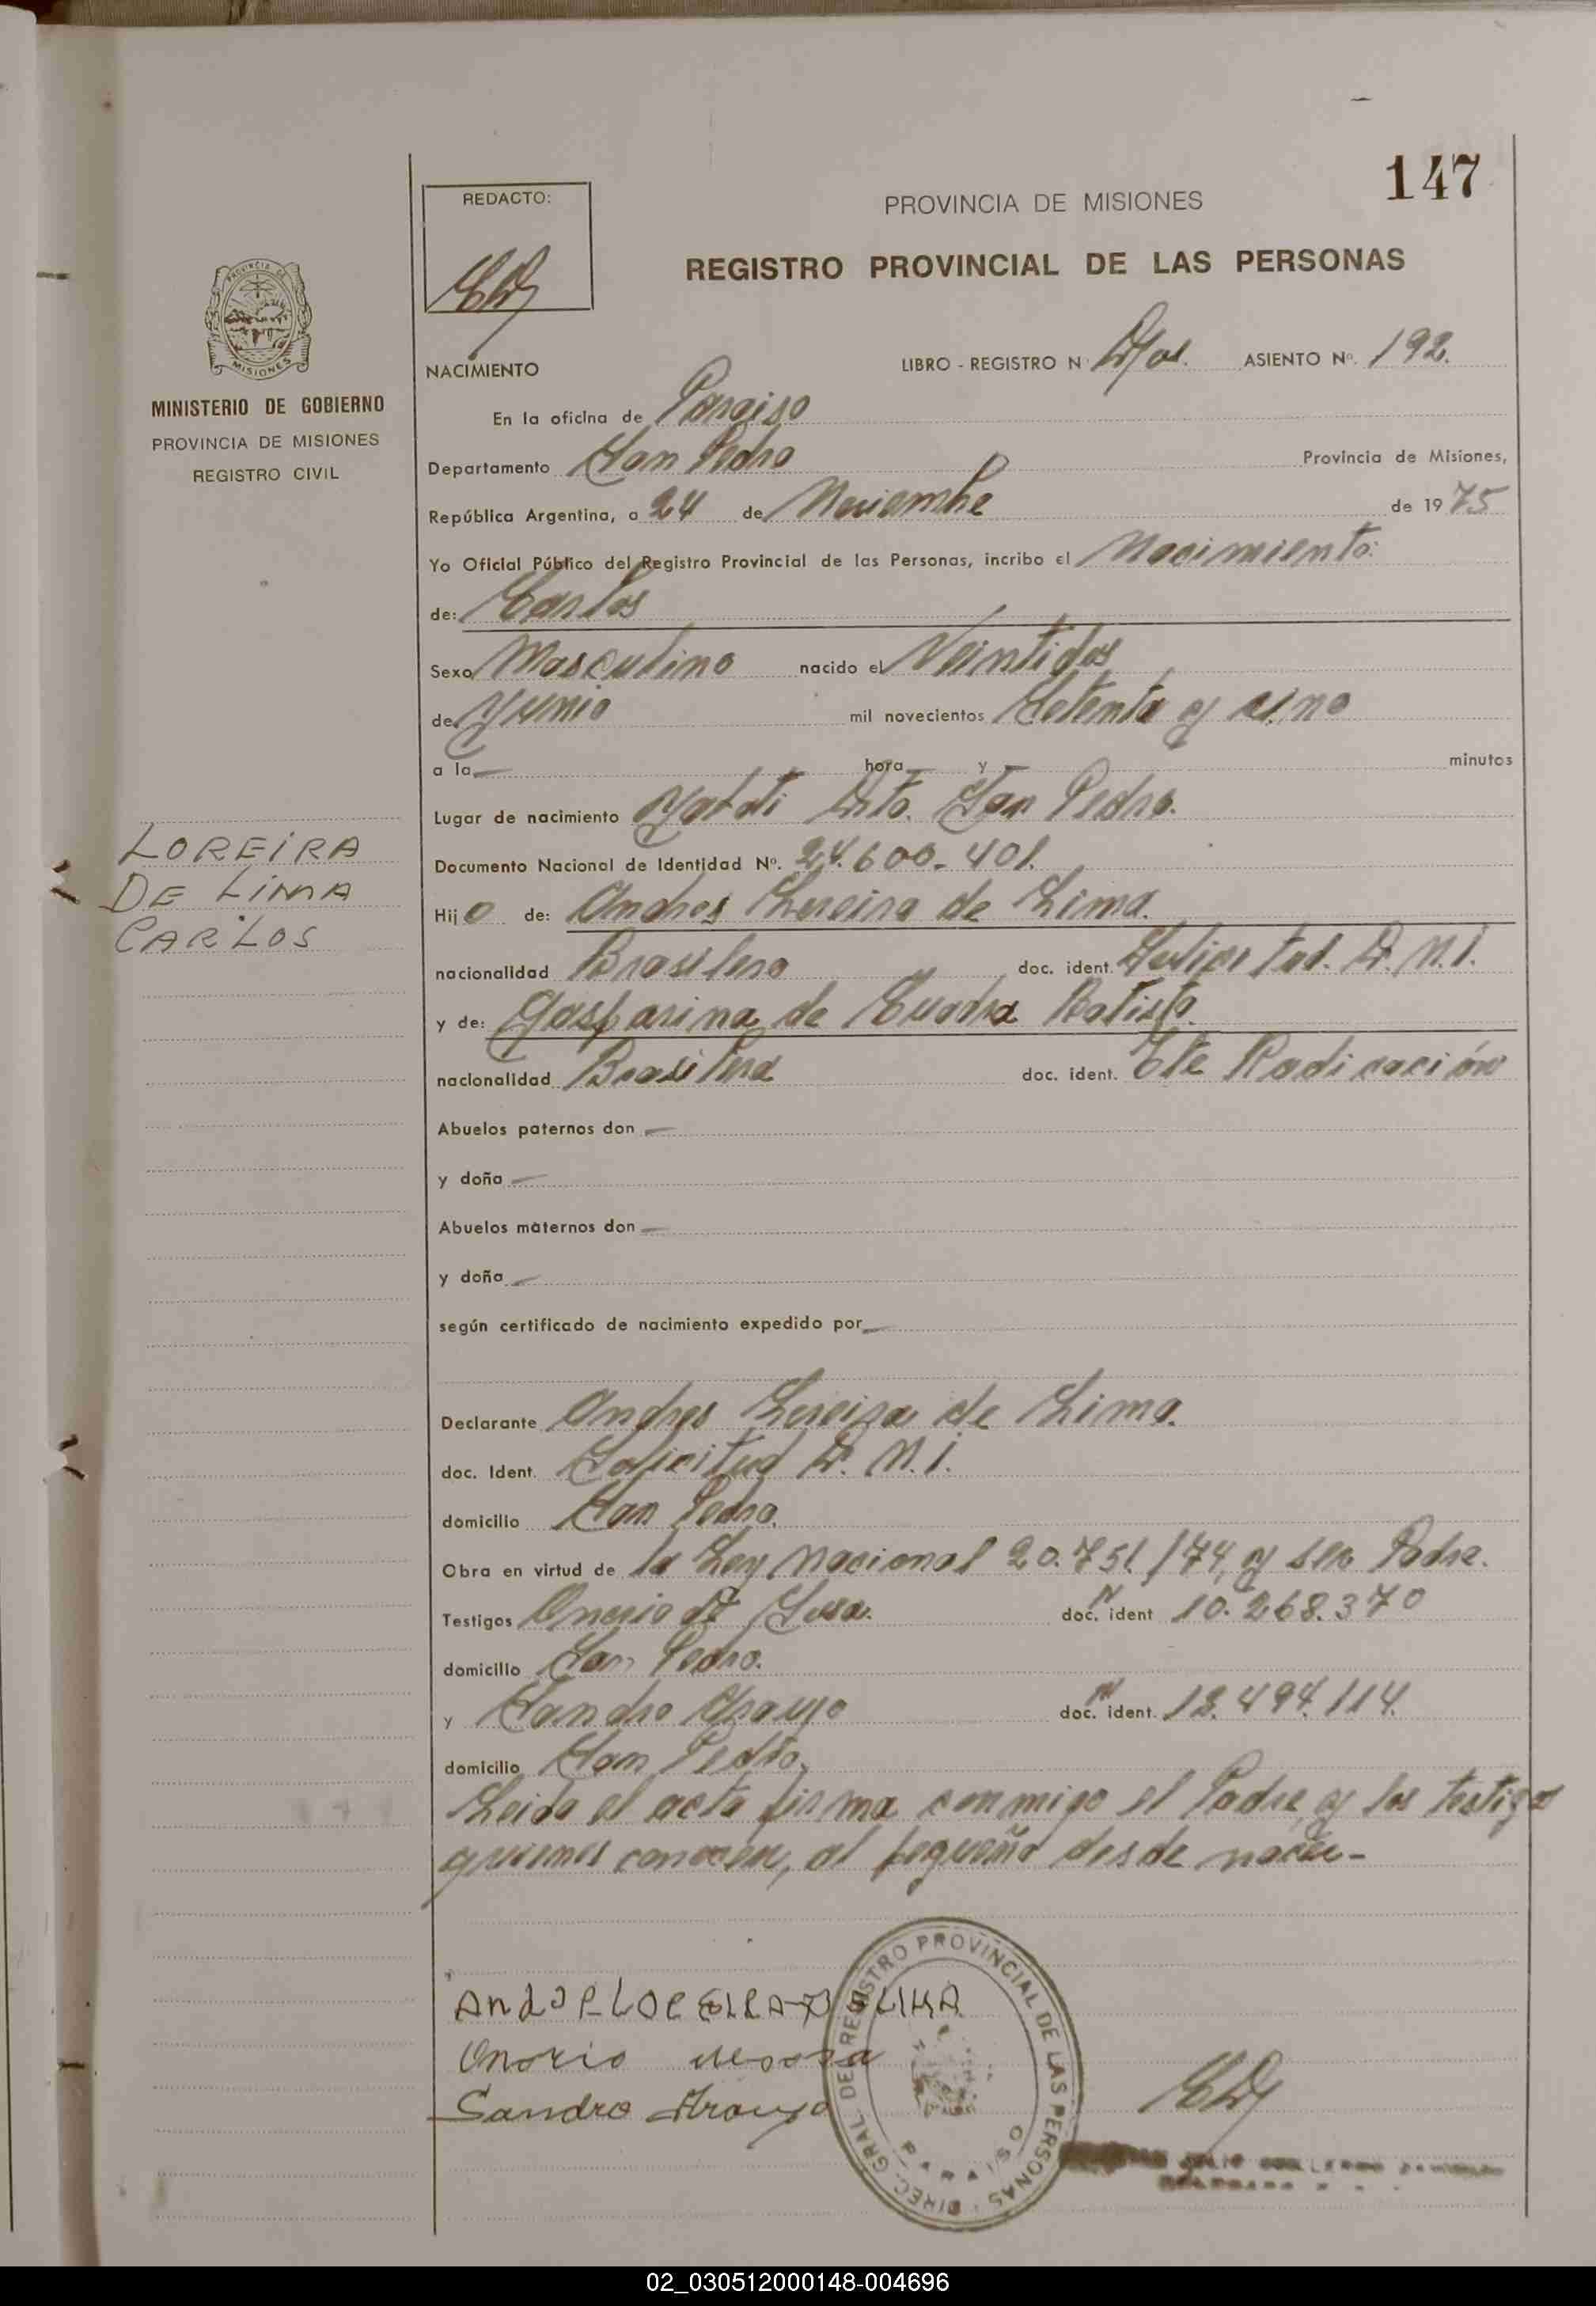 147
REDACTO:
PROVINCIA DE MISIONES
REGISTRO PROVINCIAL DE LAS PERSONAS
PROVINCIA DE MISIONES
MINISTERIO DE GOBIERNO
PROVINCIA DE MISIONES
REGISTRO CIVIL
NACIMIENTO
LIBRO - REGISTRO N ASIENTO Nº. 192.
En la oficina de Paraiso
Departamento San Pedro Provincia de Misiones,
República Argentina, a 24 de Noviembre de 1975
Yo Oficial Público del Registro Provincial de las Personas, incribo el Nacimiento:
de: Carlos
Sexo Masculino nacido el Veintidos
de Junio mil novecientos Setenta y uno
a la — hora — y — minutos
Lugar de nacimiento Dto. San Pedro.
LOREIRA
DE LIMA
CARLOS
Documento Nacional de Identidad Nº. 24.600.401.
Hijo de: Andres Loreira de Lima.
nacionalidad Brasilero doc. ident. Solicitud. D.N.I.
y de: Gasparina de Batista
nacionalidad Brasilera doc. ident. Cte Radicación
Abuelos paternos don —
y doña —
Abuelos maternos don —
y doña —
según certificado de nacimiento expedido por —
Declarante Andres Loreira de Lima.
doc. Ident. Solicitud D.N.I.
domicilio San Pedro.
Obra en virtud de la Ley Nacional 20.751/74, y ser Padre.
Testigos doc. ident 10.268.370
domicilio San Pedro.
y Sandro Araujo doc. ident. 494.114.
domicilio San Pedro.
Leida el acta firma conmigo el Padre y los testigos
quienes conocen, al pequeño desde nacer-
Onorio
Sandro Araujo
DIREC. GRAL. DEL REGISTRO PROVINCIAL DE LAS PERSONAS
PARAISO
02_030512000148-004696